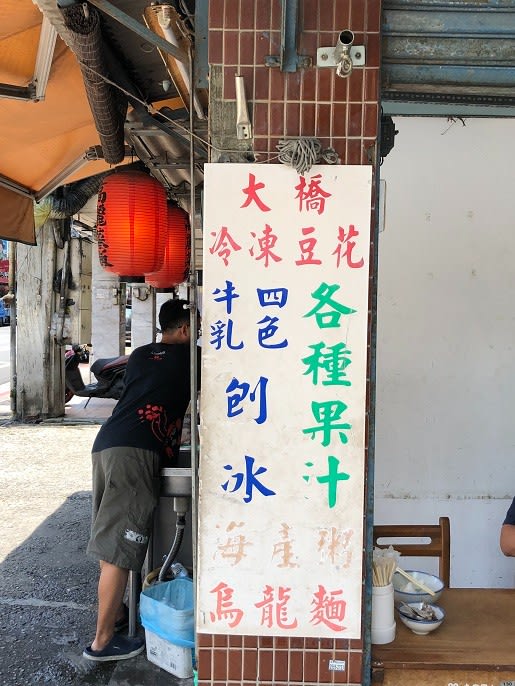 大橋
冷凍豆花
各種果汁
四色
牛乳
刨冰
海產粥
烏龍麵